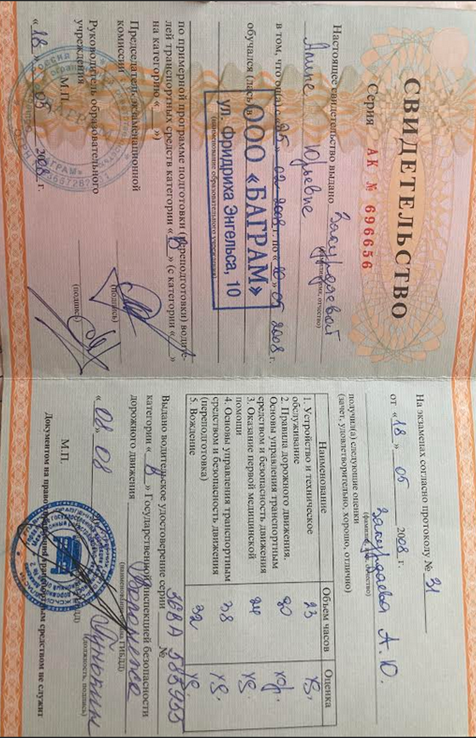 СВИДЕТЕЛЬСТВО
Серия АК № 696656
Настоящее свидетельство выдано
(фамилия, имя, отчество)
Алине Юрьевне
в том, что он(а) с « 25 » 02 2008 г. по « 10 » 05 2008 г.
обучался (лась) в
ООО «БАГРАМ»
(наименование образовательного учреждения)
ул. Фридриха Энгельса, 10
по примерной программе подготовки (переподготовки) водите-
лей транспортных средств категории « В » (с категории « »
на категорию « »)
Председатель экзаменационной
комиссии
(подпись)
Руководитель образовательного
учреждения
(подпись)
М.П.
« 18 » 05 2008 г.
На экзаменах согласно протоколу № 31
от « 18 » 05 2008 г.
А. Ю.
(фамилия, имя, отчество)
получил(а) следующие оценки
(зачет, удовлетворительно, хорошо, отлично)
Наименование Объем часов Оценка
1. Устройство и техническое
обслуживание 23 хор.
2. Правила дорожного движения.
Основы управления транспортным
средством и безопасность движения 80 хор.
3. Оказание первой медицинской
помощи 24 уд.
4. Основы управления транспортным
средством и безопасность движения
(переподготовка) 38 уд.
5. Вождение 32 уд.
Выдано водительское удостоверение серии
№
категории « В » Государственной инспекцией безопасности
дорожного движения
(наименование ГИБДД)
« 08.08
(должность, подпись)
М.П.
Документом на право управления транспортным средством не служит